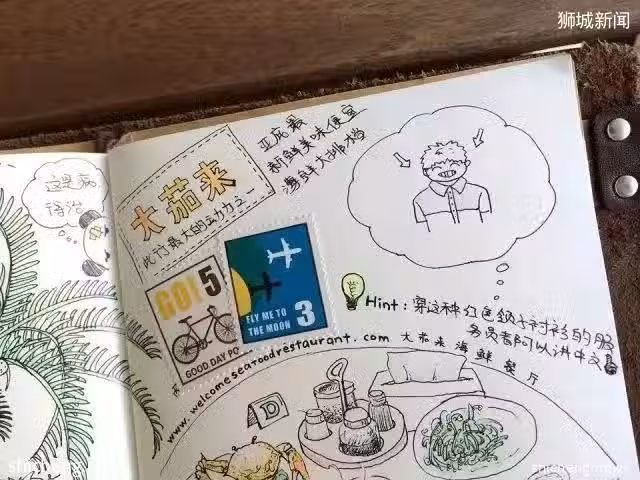 狮城新闻
这是病
待治
大茄来
此行最大的动力之一
亚庇最
新鲜美味便宜
海鲜大排档
GO! 5
GOOD DAY PO
FLY ME TO
THE MOON 3
Hint: 穿这种红色领子衬衫的服
务员都可以讲中文
www.welcomeseafoodrestaurant.com 大茄来海鲜餐厅
D